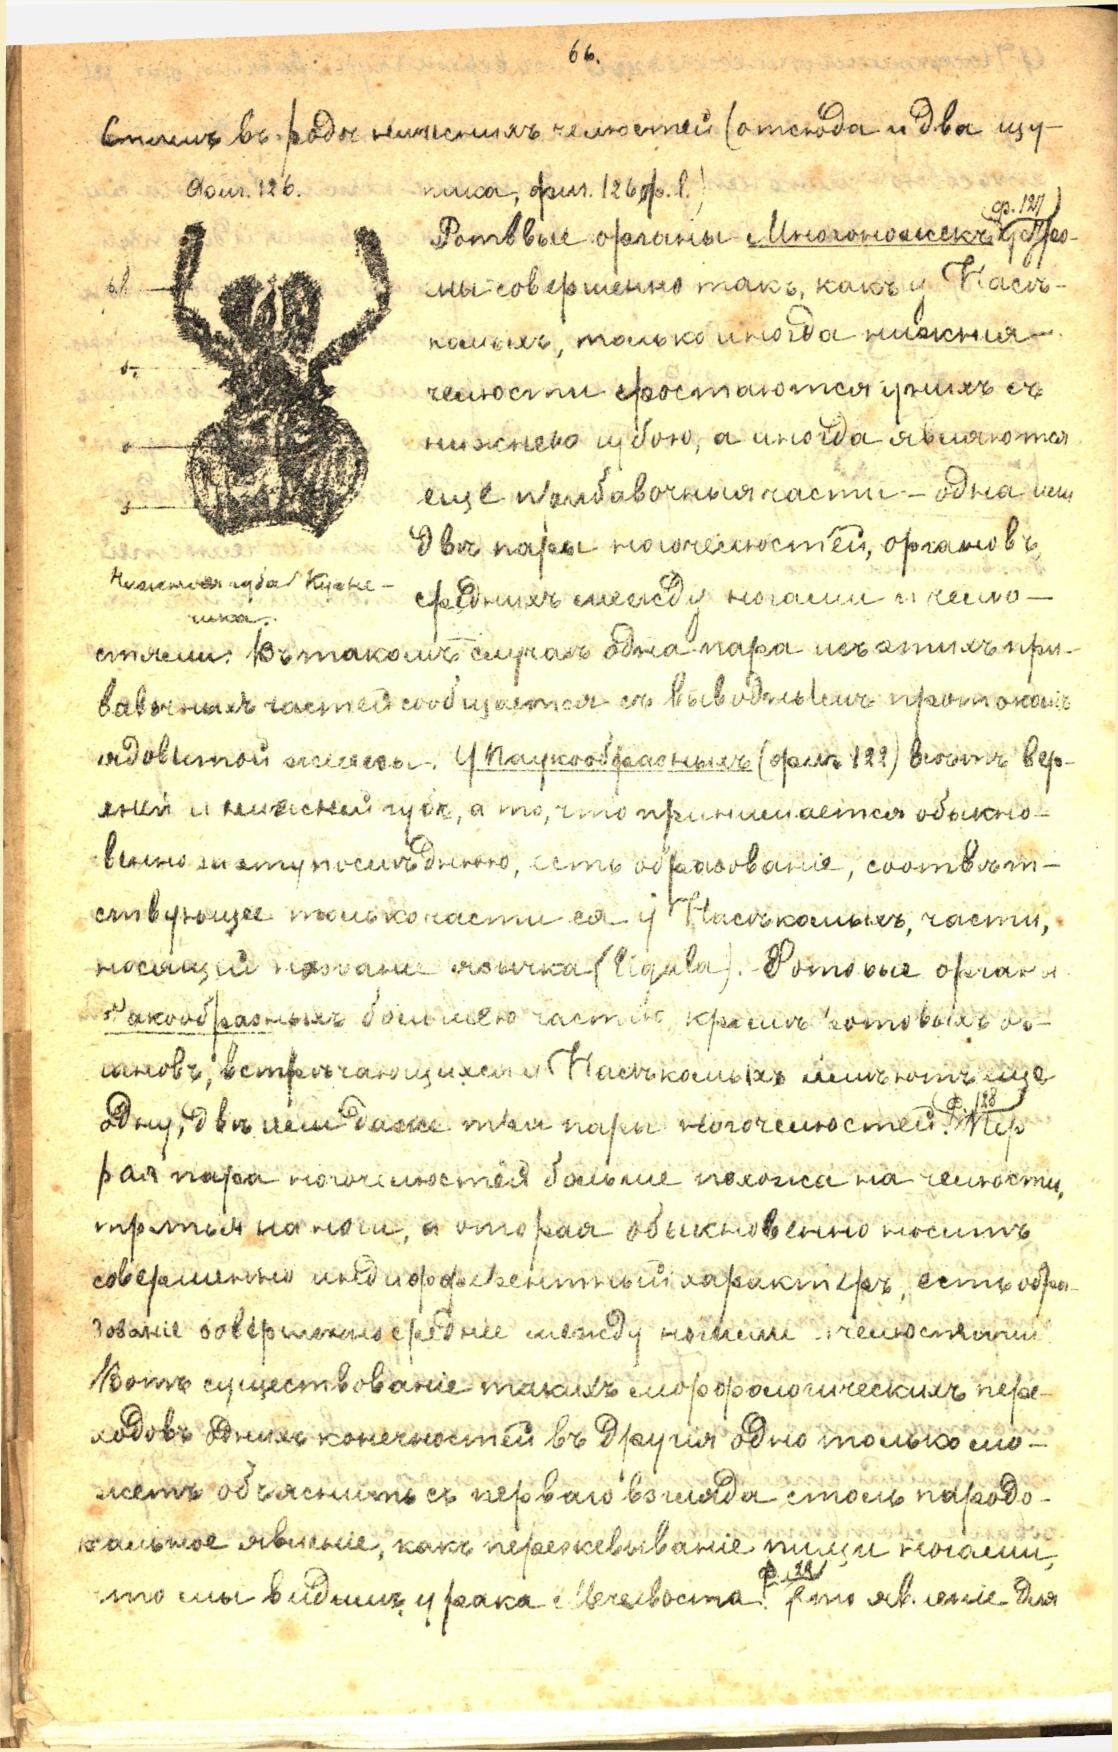 66.
въ родѣ нижнихъ челюстей (отсюда и два щу-
Фиг. 126.
пика, фиг. 126 p. l.)
Ротовые органы Многоножекъ (ф. 127) устро-
ны совершенно такъ, какъ у Насѣ-
комыхъ, только иногда нижнія
челюсти сростаются у нихъ съ
нижнею губою, а иногда являются
еще прибавочныя части – одна или
двѣ пары ногочелюстей, органовъ,
среднихъ между ногами и челю-
Нижняя губа Кузне-
чика.
стями. Въ такомъ случаѣ одна пара изъ этихъ при-
бавочныхъ частей сообщается съ выводнымъ протокомъ
ядовитой железы. У Паукообразныхъ (фиг. 122) нѣтъ вер-
хней и нижней губы, а то, что принимается обыкно-
венно за эту послѣднюю, есть образованіе, соотвѣт-
ствующее только части ея у Насѣкомыхъ, части,
носящей названіе язычка (ligula). Ротовые органы
Ракообразныхъ большею частію, кромѣ ротовыхъ ор-
гановъ, встрѣчающихся у Насѣкомыхъ имѣютъ еще
одну, двѣ или даже три пары ногочелюстей. (ф. 128) Пер
вая пара ногочелюстей больше похожа на челюсти,
третья на ноги, а вторая обыкновенно носитъ
совершенно индифферентный характеръ, есть обра-
зованіе совершенно среднее между ногами и челюстями.
Вотъ существованіе такихъ морфологическихъ пере-
ходовъ однихъ конечностей въ другія одно только мо-
жетъ объяснить съ перваго взгляда столь парадо-
кальное явленіе, какъ пережевываніе пищи ногами,
что мы видимъ у рака Мечехвоста. Это явленіе для